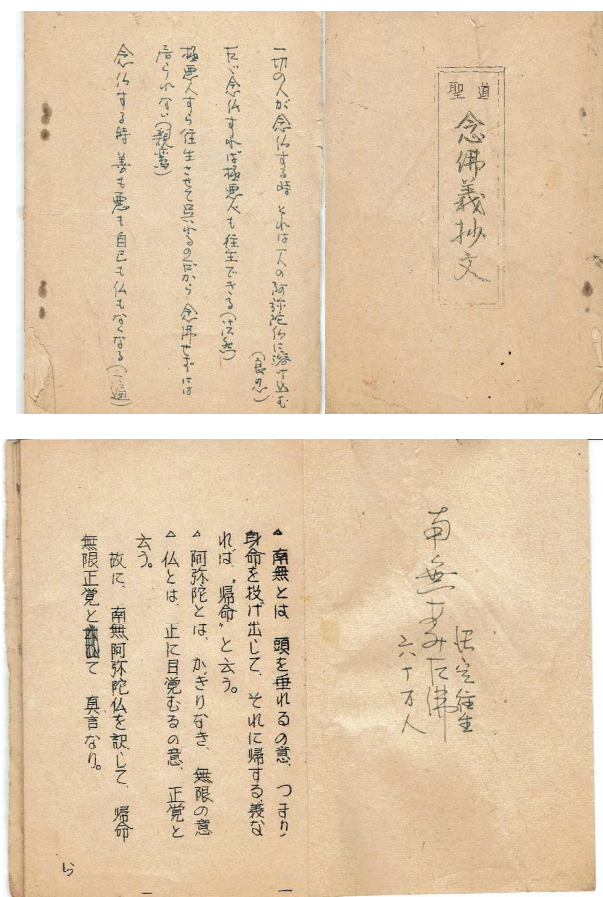 聖道
念佛義抄文
一切の人が念仏する時 それは一人の阿弥陀仏に溶け込む
(良忍)
たゞ念仏すれば極悪人も往生できる(法然)
極悪人すら往生させて呉れるのだから 念佛せずには
居られない(親鸞)
念仏する時 善も悪も自己も仏もなくなる(一遍)
南無あみだ佛
決定往生
六十万人
△ 南無とは、頭を垂れるの意、つまり、
身命を投げ出して、それに帰する義な
れば“帰命”と云う。
△ 阿弥陀とは、かぎりなき、無限の意
△ 仏とは、正に目覚むるの意、正覚と
云う。
故に、南無阿弥陀仏を訳して、帰命
無限正覚と して 真言なり。